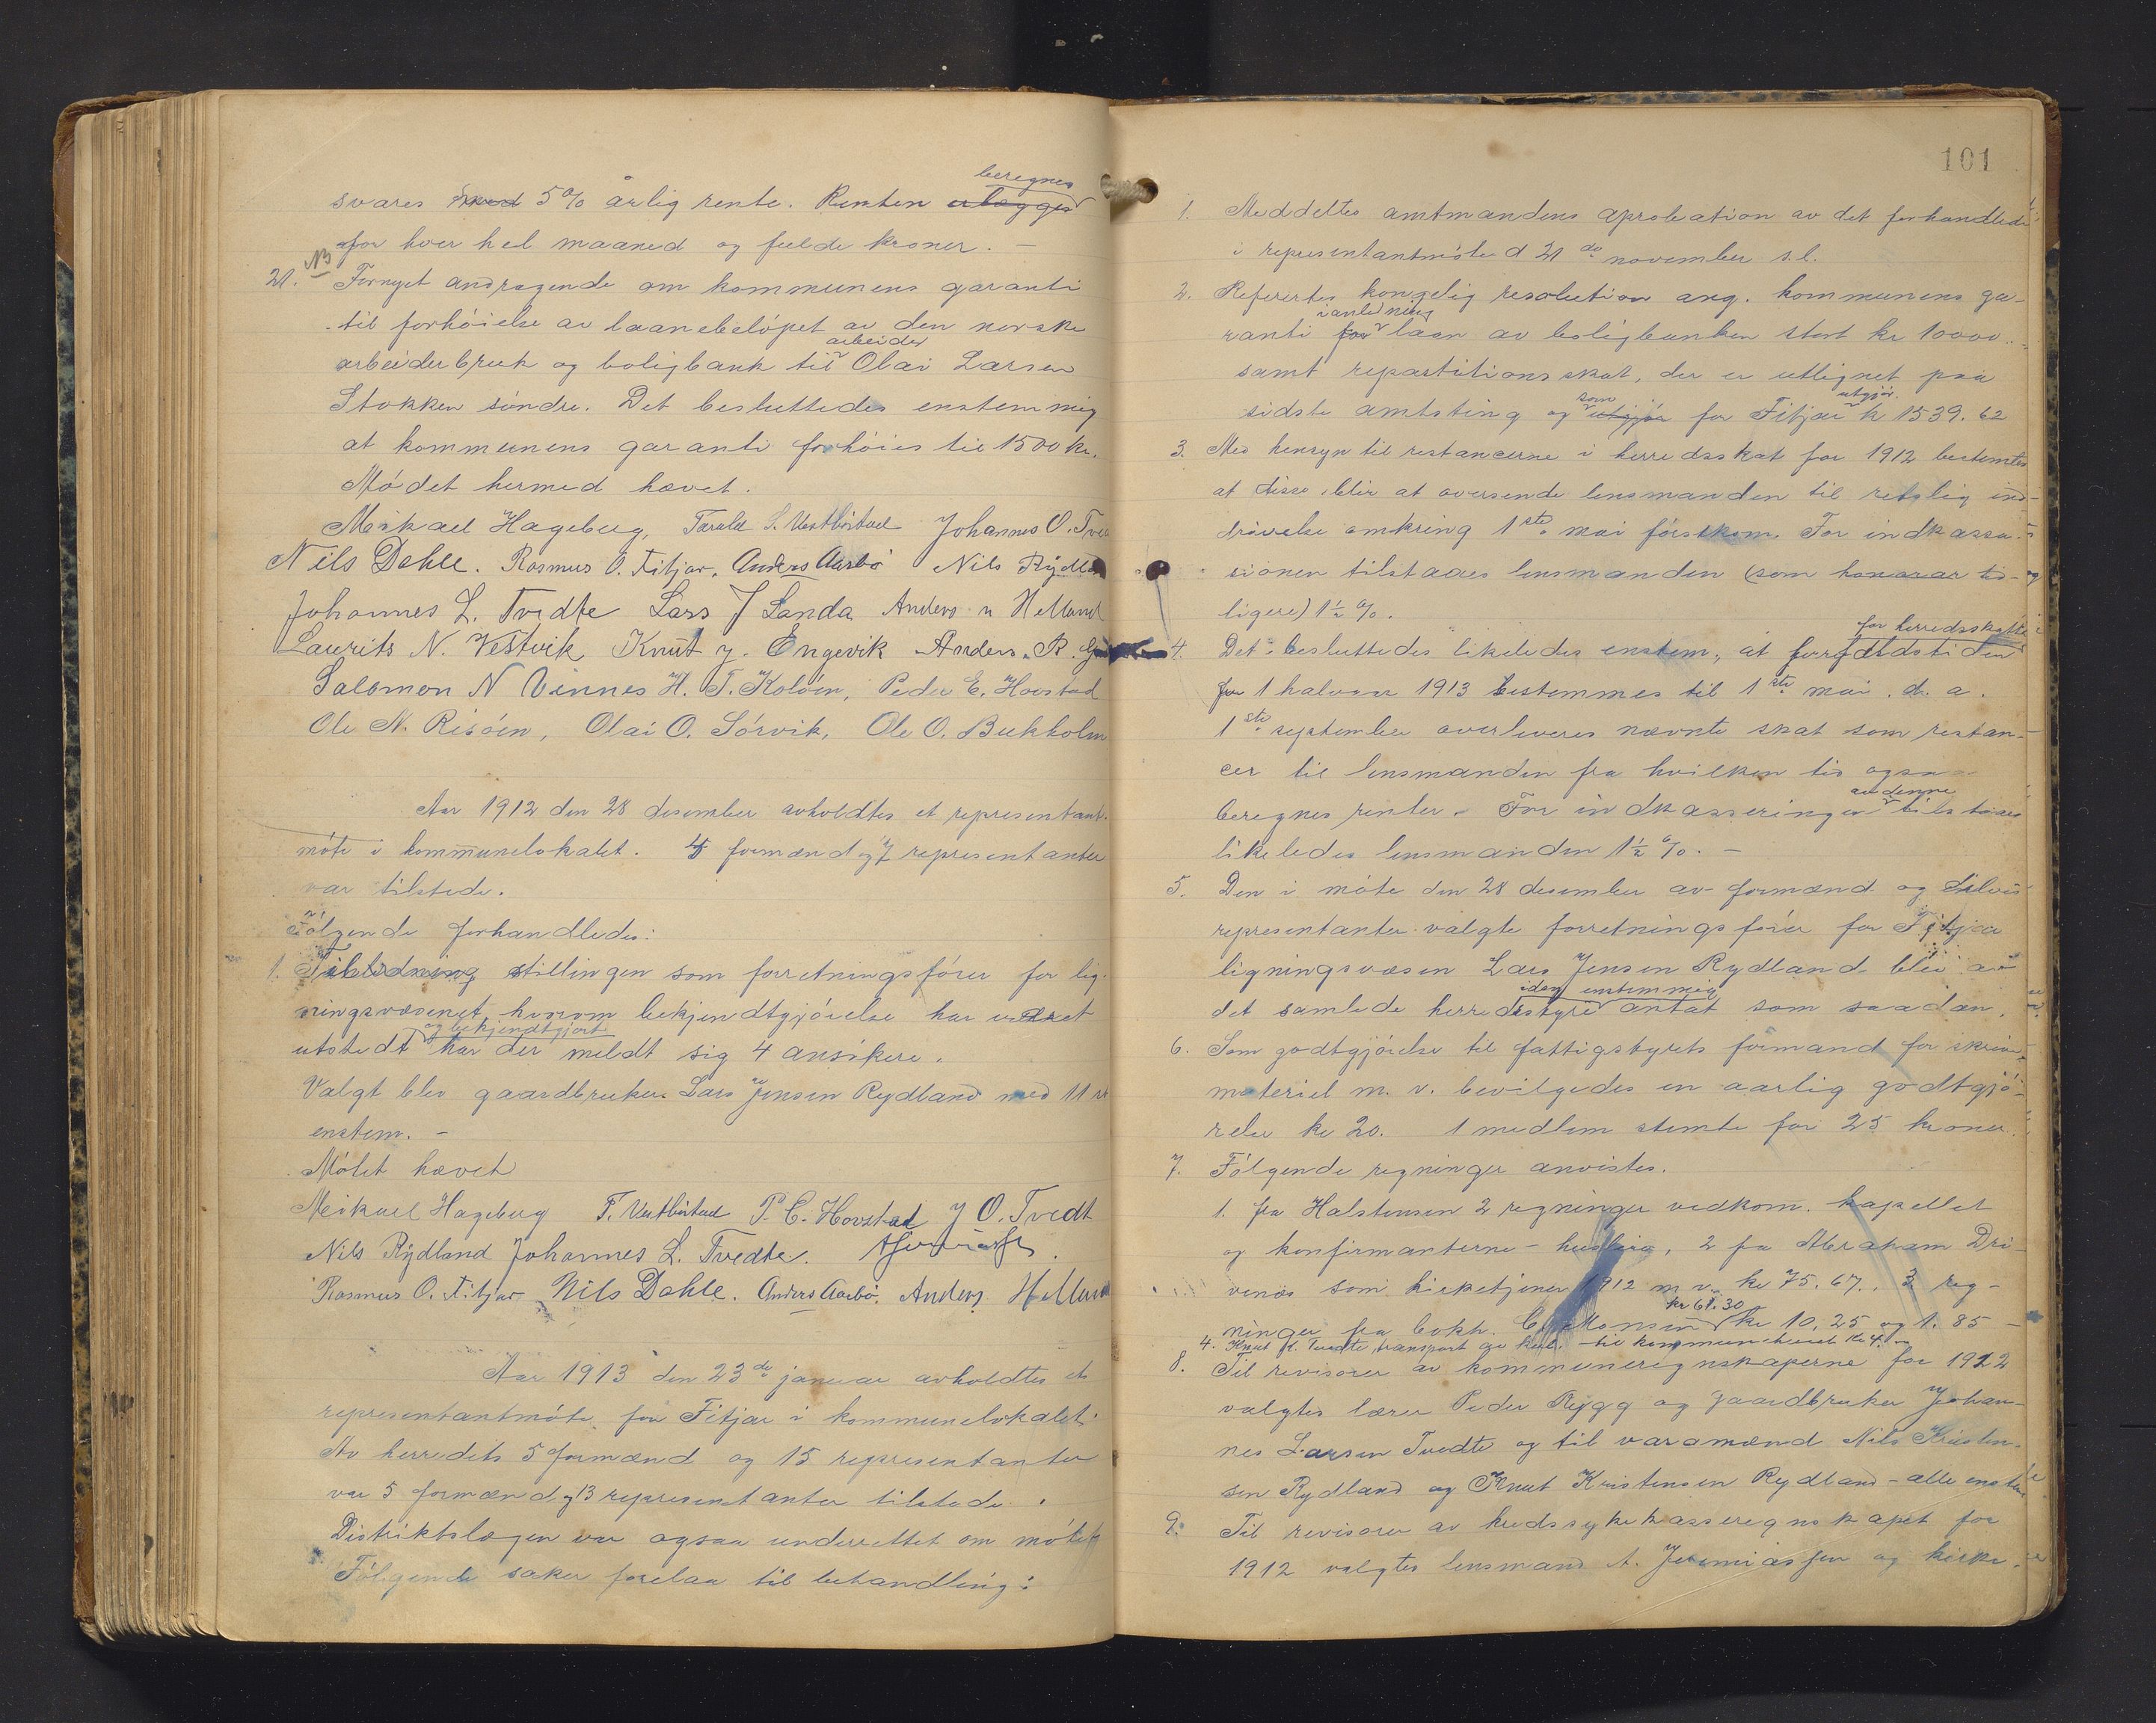 beregnes
svares med 5% årlig rente. Renten erlægges
for hver hel maaned og fulde kroner. —
NB
21. Fornyet andragende om kommunens garanti
til forhöielse av laanebelöpet av den norske
arbeider
arbeiderbruk og boligbank til Olai Larsen
Stokken söndre. Det besluttedes enstemmig
at kommunens garanti forhöies til 1500 kr.
Mödet hermed hævet.
Mikael Hageberg, Tarald S. Vestböstad Johannes O. Tvedt
Nils Dahle. Rasmus O. Fitjar. Anders Aarbö Nils Rydland
Johannes L. Tvedte Lars J Landa Anders N Helland
Laurits N. Vestvik Knut J. Engevik Anders. R.
Salomon N Vinnes H. T. Koløen, Peder E. Hovstad
Ole N. Risöen, Olai O. Sörvik, Ole O. Bukholm
Aar 1912 den 28 desember avholdtes et representant-
möte i kommunelokalet. 4 formænd og 7 representanter
var tilstede.
Fölgende forhandledes:
1. stillingen som forretningsförer for lig-
ningsvæsenet, hvorom bekjendtgjörelse har været
og bekjendtgjort
utstedt har der meldt sig 4 ansökere.
Valgt blev gaardbruker Lars Jensen Rydland med 11 st
enstem. —
Mötet hævet
Mikael Hageberg T. Vestböstad P. E. Hovstad J O. Tvedt
Nils Rydland Johannes L. Tvedte.
Rasmus O. Fitjar Nils Dahle. Anders Aarbö. Anders Helland
Aar 1913 den 23de januar avholdtes et
representantmöte for Fitjar i kommunelokalet.
Av herredets 5 formænd og 15 representanter
var 5 formænd og 13 representanter tilstede.
Distriktslægen var ogsaa underrettet om mötet
Fölgende saker forelaa til behandling:
101
1. Meddeltes amtmandens aprobation av det forhandlede
i representantmöte d 21de november s.l.
2. Refertes kongelig resolution ang. kommunens ga-
i anledning
ranti for laan av boligbanken stort kr 10000.
samt repartitionsskat, der er utlignet paa
som utgjör
sidste amtsting og utgjör for Fitjar kr 1539.62
3. Med hensyn til restancerne i herredsskat for 1912 bestemtes
at disse blir at oversende lensmanden til retslig ind-
drivelse omkring 1ste mai förstkom. For indkassa-
sionen tilstaaes lensmanden (som honorar tid-
ligere) 1½ %.
for herredsskatte
4. Det besluttedes likeledes enstem., at forfaldstiden
for 1 halvaar 1913 bestemmes til 1ste mai d. a.
1ste september overleveres nævnte skat som restan-
cer til lensmanden fra hvilken tid ogsaa
av denne
beregnes renter. For indkasseringen tilstaaes
likeledes lensmanden 1½ %. —
5. Den i möte den 28 desember av formænd og delvis
representanter valgte forretningsförer for Fitjar
ligningsvæsen Lars Jensen Rydland blev av
idag enstemmig
det samlede herredsstyre antat som saadan.
6. Som godtgjörelse til fattigstyrets formand for skrive-
materiel m. v. bevilgedes en aarlig godtgjö-
relse kr 20. 1 medlem stemte for 25 kroner.
7. Fölgende regninger anvistes.
1. fra Halstensen 2 regninger vedkom. kapellet
og konfirmanterne - husleie, 2 fra Abraham Dri-
venös som kirketjener 1912 m. v. kr 75.67. 3 reg-
kr 61.30
ninger fra bokh. C. Monsen kr 10,25 og 1.85 —
4. Knut K. Tvedte, transport av kul. til kommunehuset kr 4.
8. Til revisorer av kommuneregnskaperne for 1912
valgtes lærer Peder Rygg og gaardbruker Johan-
nes Larsen Tvedte og til varamænd Nils Kristen-
sen Rydland og Knut Kristensen Rydland - alle enstem
9. Til revisorer av kredssykekasseregnskapet for
1912 valgtes lensmand A. Jeremiassen og kirke-